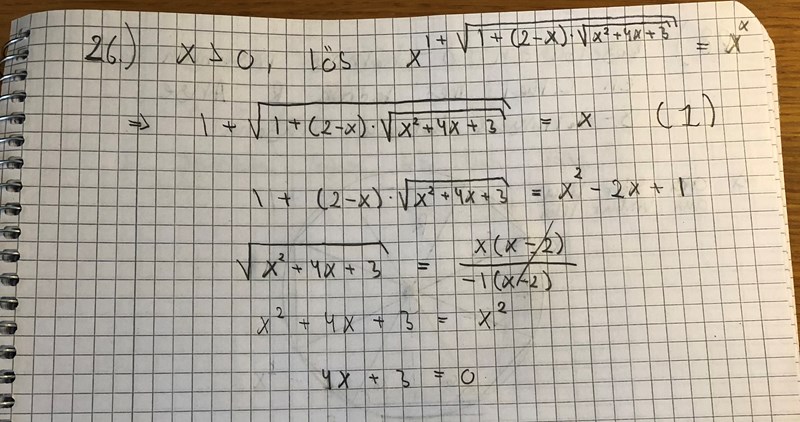 26.) x > 0, lös x^{1+√(1+(2-x)·√(x²+4x+3))} = x^x
⇒ 1 + √(1+(2-x)·√(x²+4x+3)) = x (1)
1 + (2-x)·√(x²+4x+3) = x² - 2x + 1
√(x²+4x+3) = x(x-2) / -1(x-2)
x² + 4x + 3 = x²
4x + 3 = 0